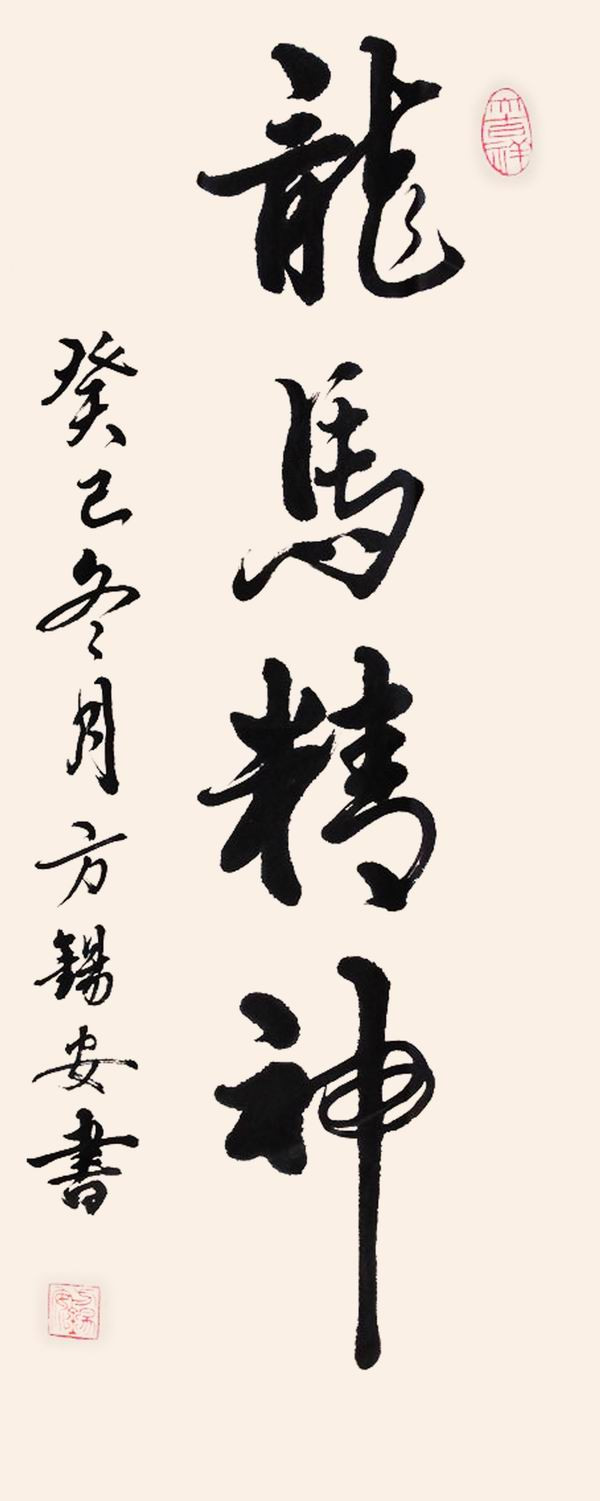 龍馬精神
大吉祥
癸巳冬月方錫安書